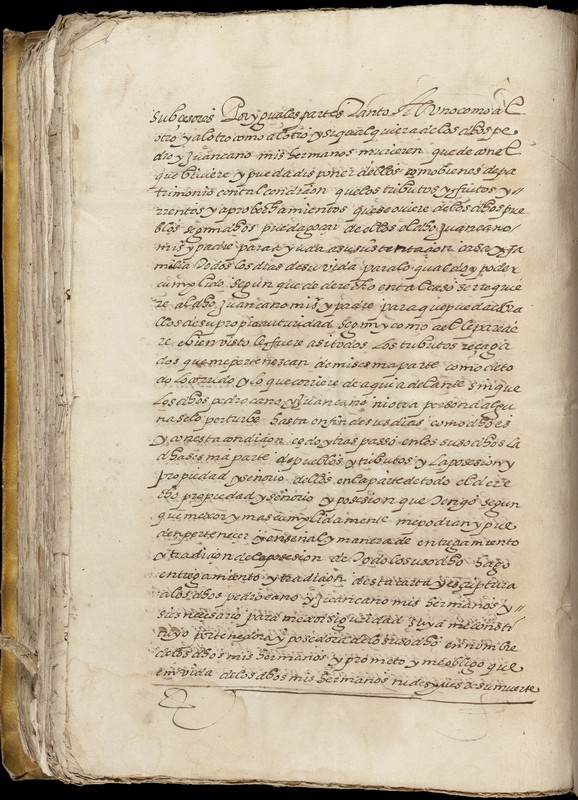 subcesores Por yguales partes Tanto Al Uno como al
otro y al otro como al otro y si qualquiera de los dhos pe
dro y Juan cano mis hermanos murieren quede con el
que biviere y pueda disponer dellos como bienes de pa
trimonio con tal condicion que los tributos y frutos y
rrentos y aprobechamientos que se oviere de los dhos pue
blos segun dhos pueda gozar de ellos el dho Juan cano
mi s y padre para ayuda a su sustentacion casa y fa
milia Todos los dias de su vida para lo qual doy poder
cumplido segun que de derecho en tal caso se rrequie
re al dho Juan cano mi s y padre para que pueda
de su propia auturidad segun y como a el le parecie
re e bien visto le fuere asi todos los tributos
dos que me pertenezcan de mi sesma parte como de to
do lo corrido y lo que corriere de aqui adelante sin que
los dhos pedro cano y Juan cano ni otra persona algu
na se lo perturbe hasta en fin de sus dias como dho es
y con esta condicion cedo y tras passo en los susodhos la
dha sesma parte de pueblos y tributos y la posesion y
propiedad y señorio dellos en la parte de todo el dere
cho propiedad y señorio y posesion que Tengo segun
que mexor y mas cumplidamente me podrian y pue
den pertenecer y en señal y manera de entregamiento
y tradicion de la posesion de Todo lo susodho hago
entregamiento y tradicion desta carta y escriptura
a los dhos pedro cano y Juan cano mis hermanos y
si es necesario para mexor siguridad suya me consti
tuyo por tenedora y poseedora de lo susodho en nombre
de los dhos mis hermanos y prometo y me obligo que
en vida de los dhos mis hermanos ni despues de su muerte